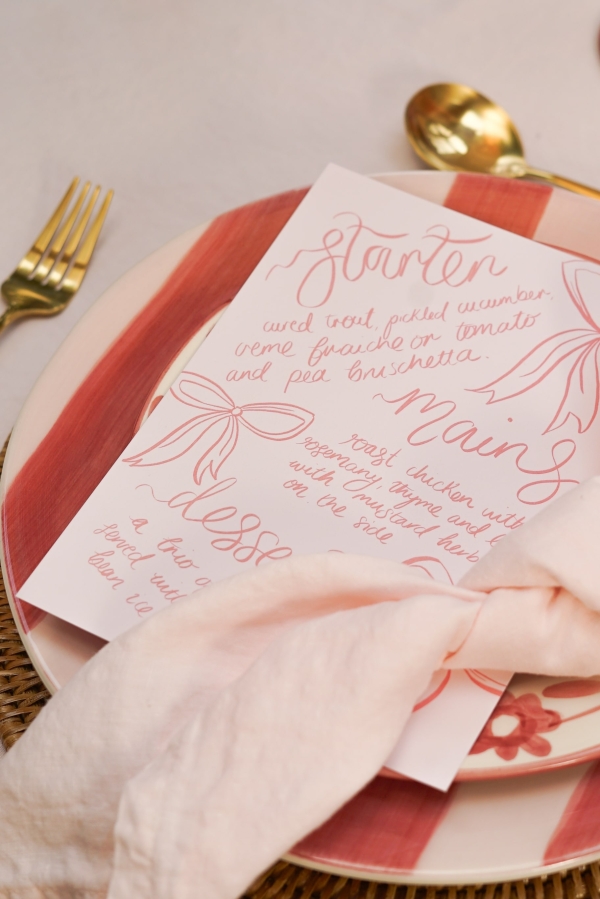 starter
cured trout, pickled cucumber,
creme fraiche or tomato
and pea bruschetta.
mains
roast chicken with
rosemary, thyme and
with mustard herb
on the side
desse
a trio
served with
bean ice